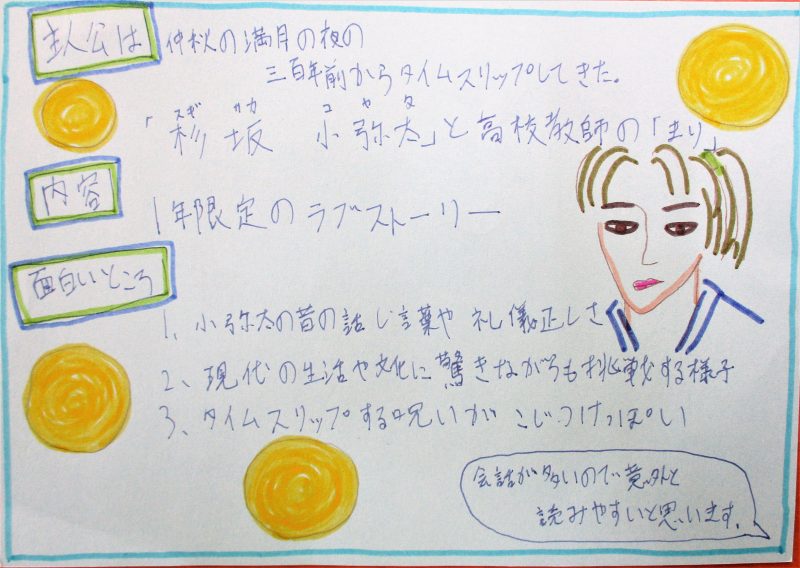 主人公は 仲秋の満月の夜の
三百年前からタイムスリップしてきた。
スギ サカ コ ヤ タ
「杉坂 小弥太」と高校教師の「まり」
内容
1年限定のラブストーリー
面白いところ
1、小弥太の昔の話し言葉や礼儀正しさ
2、現代の生活や文化に驚きながらも挑戦する様子
3、タイムスリップする呪いがこじつけっぽい
会話が多いので意外と
読みやすいと思います。